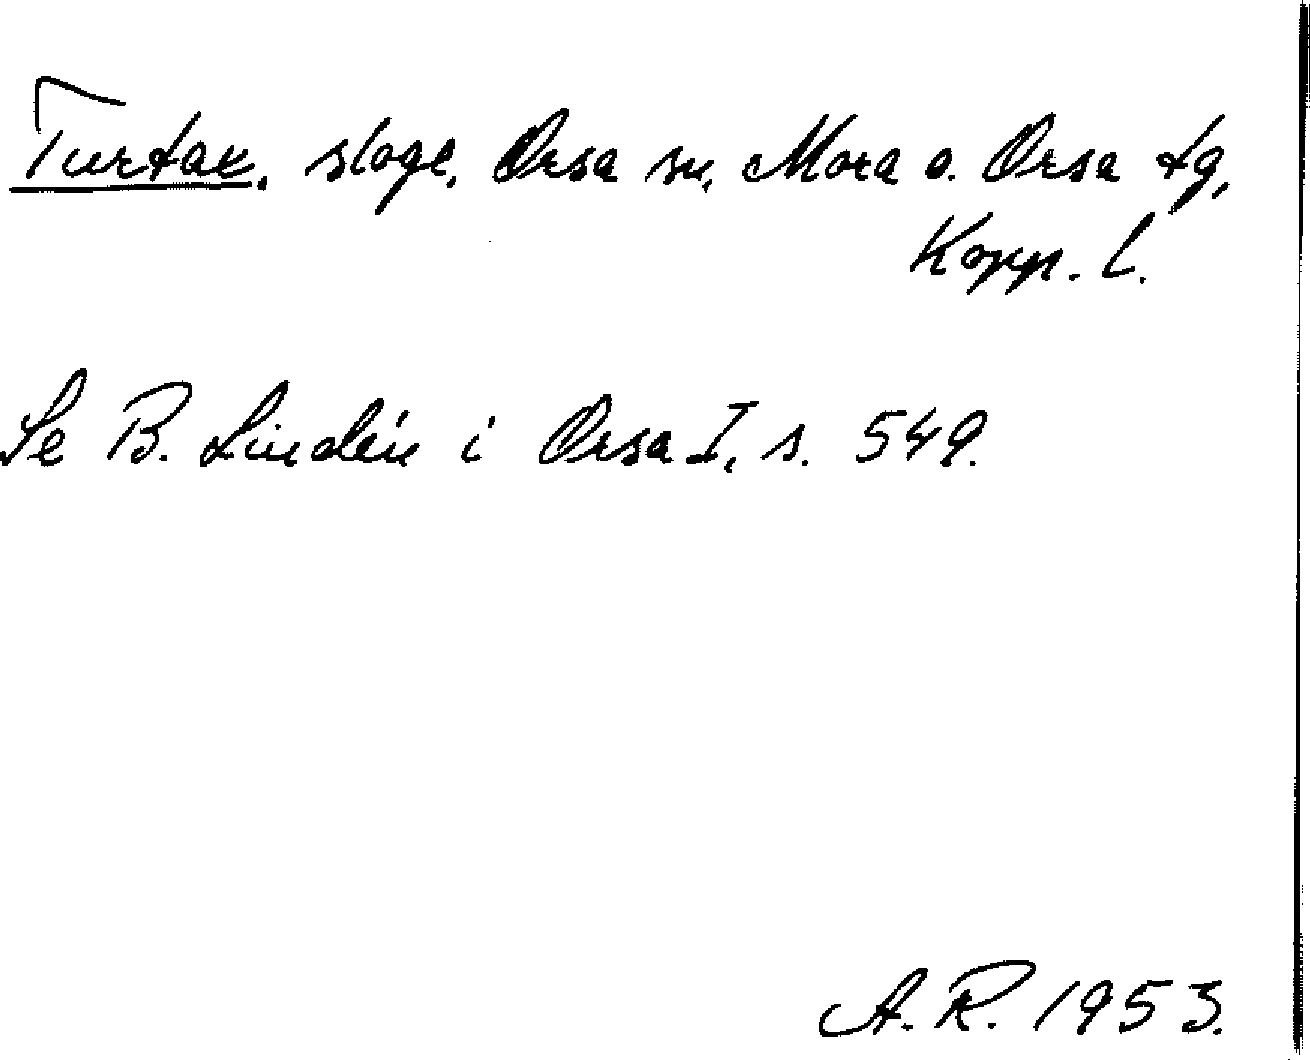 Turtar, sloge, Orsa sn, Mora o. Orsa tg,
Kopp. l.
Se B. Lindén i Orsa I, s. 549.
A.R. 1953.